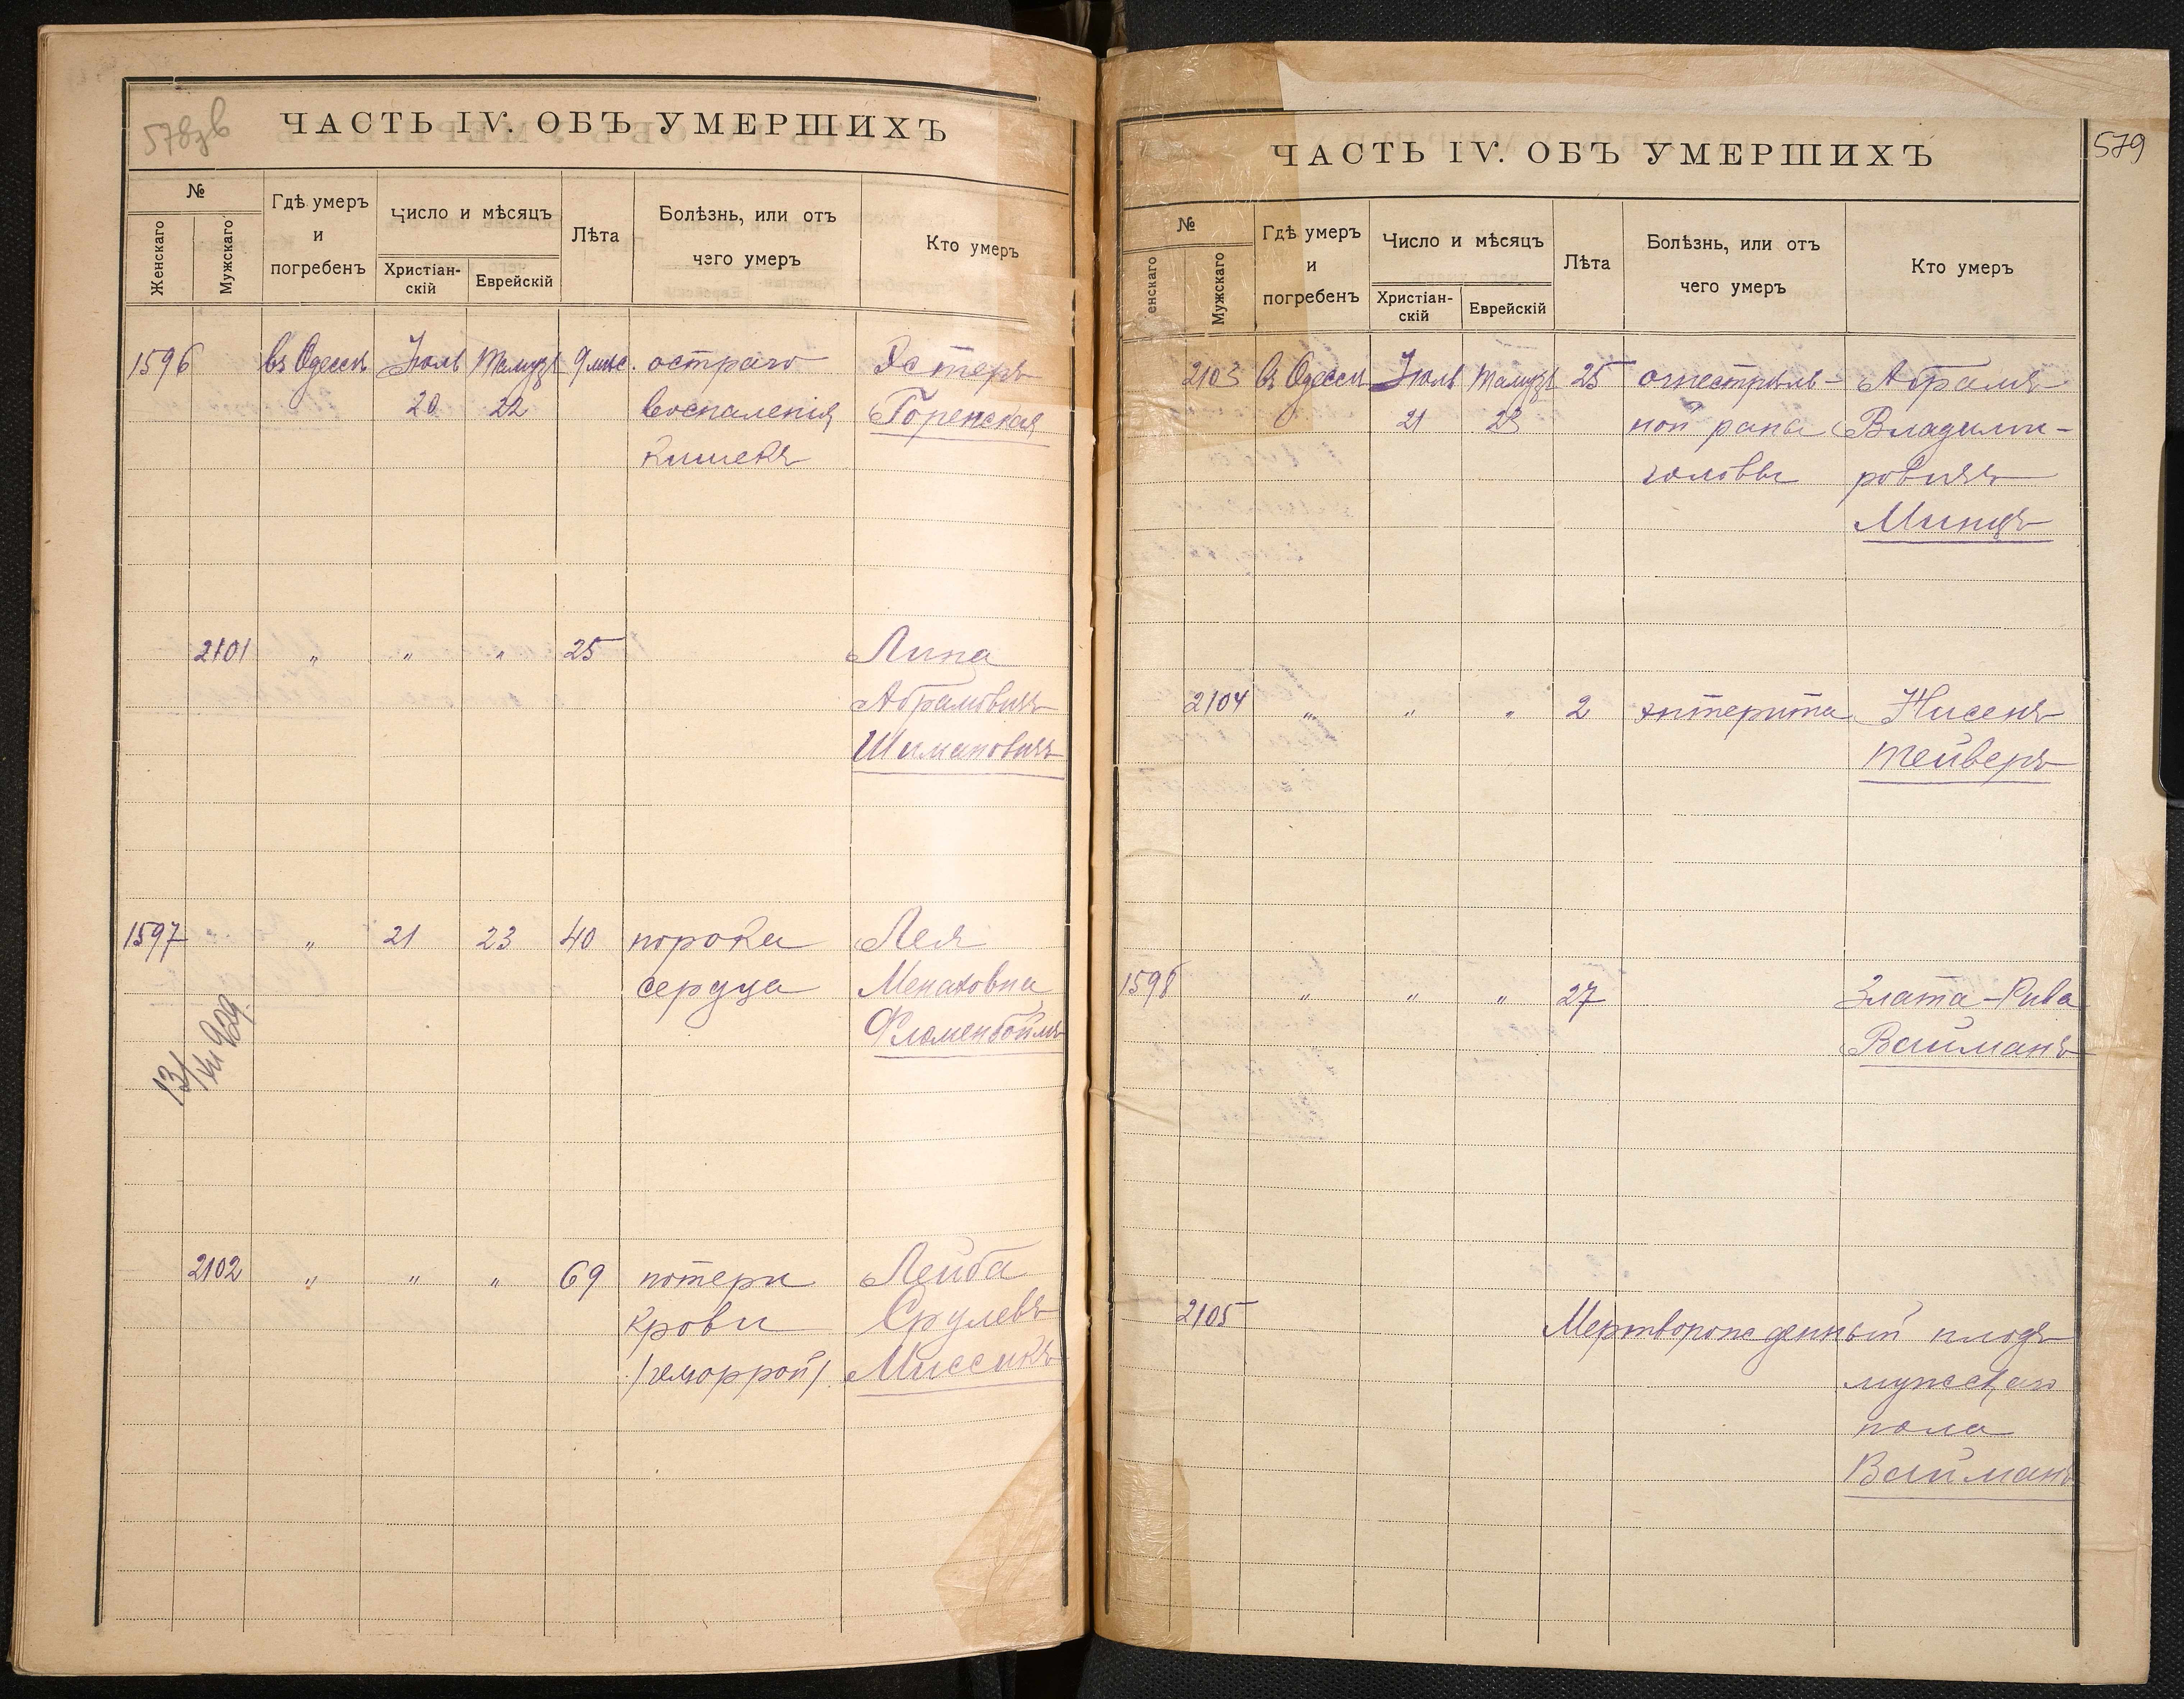 578зв
ЧАСТЬ IV. ОБЪ УМЕРШИХЪ
№
Женскаго
Мужскаго
Гдѣ умеръ
и
погребенъ
Число и мѣсяцъ
Христіан-
скій
Еврейскій
Лѣта
Болѣзнь, или отъ
чего умеръ
Кто умеръ
1596 въ Одессѣ Іюль Тамузъ 9 мѣс. остраго Эстеръ
20 22 воспаленія Горенская
кишекъ
2101 " " " 25 Липа
Абрамовичъ
Шимановичъ
1597 " 21 23 40 порока Лея
сердца Менаховна
Флюменбоймъ
2102 " " " 69 потери Лейба
крови Срулевъ
/геморрой/ Миссикъ
579
ЧАСТЬ IV. ОБЪ УМЕРШИХЪ
№
енскаго
Мужскаго
Гдѣ умеръ
и
погребенъ
Число и мѣсяцъ
Христіан-
скій
Еврейскій
Лѣта
Болѣзнь, или отъ
чего умеръ
Кто умеръ
2103 въ Одессѣ Іюль Тамузъ 25 огнестрѣль- Абрамъ
21 23 ной рана Владими-
головы ровичъ
Минцъ
2104 " " " 2 энтерита Нисенъ
Тейверъ
1598 " " " 27 Злата-Рива
Вайманъ
2105 Мертворожденный плодъ
мужскаго
пола
Вайманъ